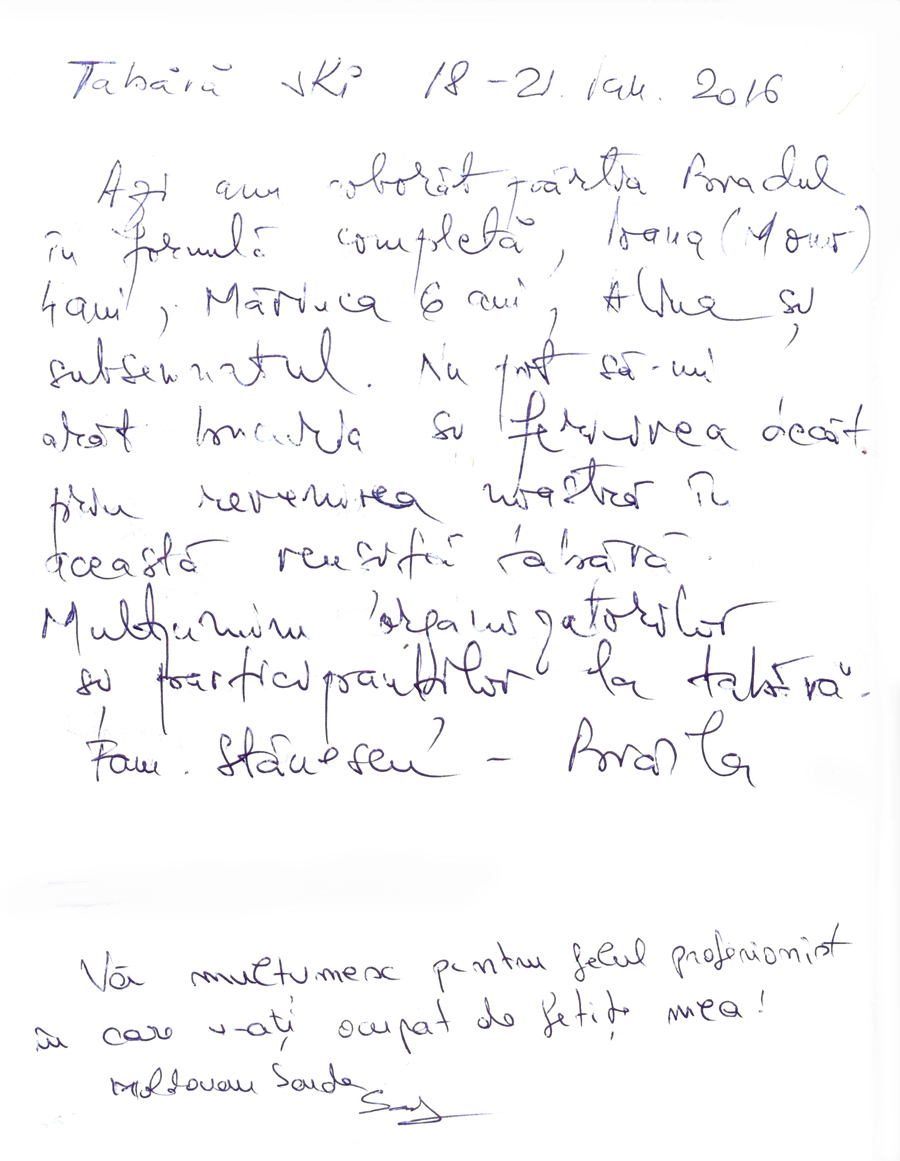 Tabără ski 18-21. Ian. 2016
Azi am coborât pârtia Bradul
în formulă completă, Ioana
4 ani, Măriuca 6 ani, Alina și
subsemnatul. Nu pot să-mi
arăt bucuria și fericirea decât
prin revenirea noastră în
această reușită tabără.
Mulțumim organizatorilor
și participanților la tabără.
Fam. Stănescu - Brăila
Vă multumesc pentru felul profesionist
în care v-ați ocupat de fetița mea!
Moldovan Sanda